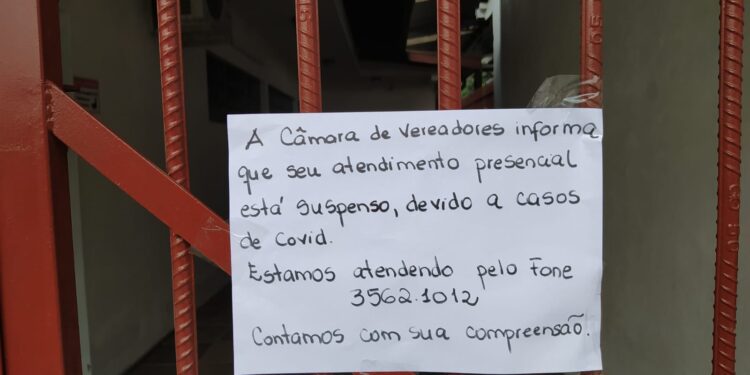 A Câmara de Vereadores informa
que seu atendimento presencial
está suspenso, devido a casos
de Covid.
Estamos atendendo pelo Fone
3562.1012
Contamos com sua compreensão.